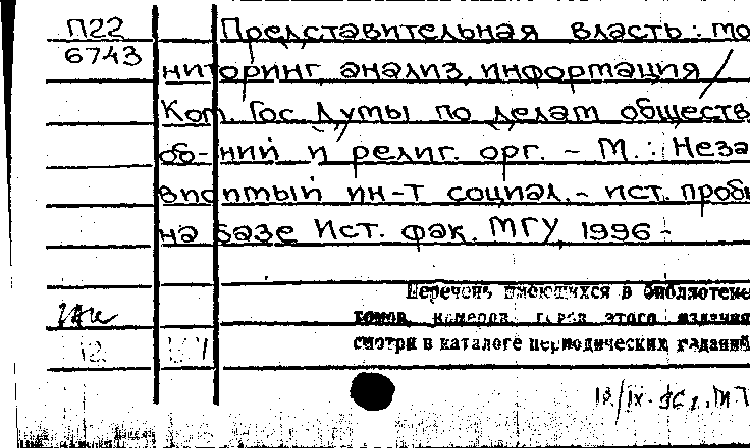 П22 Представительная власть: мо
6743 ниторинг, анализ, информация /
Ком. Гос. Думы по делам обществ.
об-ний и религ. орг. - М.: Неза
висимый ин-т социал.- ист. проб
на базе Ист. фак. МГУ, 1996 -
Перечень имеющихся в библиотеке
томов, номеров, годов этого издания
смотри в каталоге периодических изданий
12.